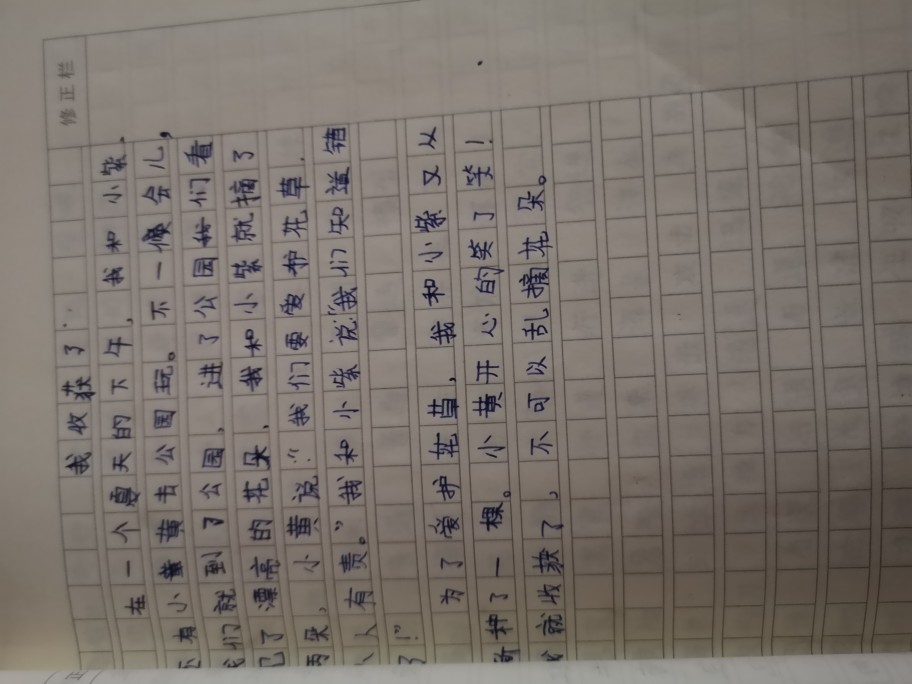 修正栏
我收获了…
在一个夏天的下午，我和小紫、
还有小黄去公园玩。不一会儿，
我们就到了公园，进了公园我们看
见了漂亮的花朵，我和小紫就摘了
两朵，小黄说：“我们要爱护花草，
人人有责。”我和小紫说：“我们知道错
了！”
为了爱护花草，我和小紫又从
新种了一棵。小黄开心的笑了笑！
我就收获了，不可以乱摘花朵。